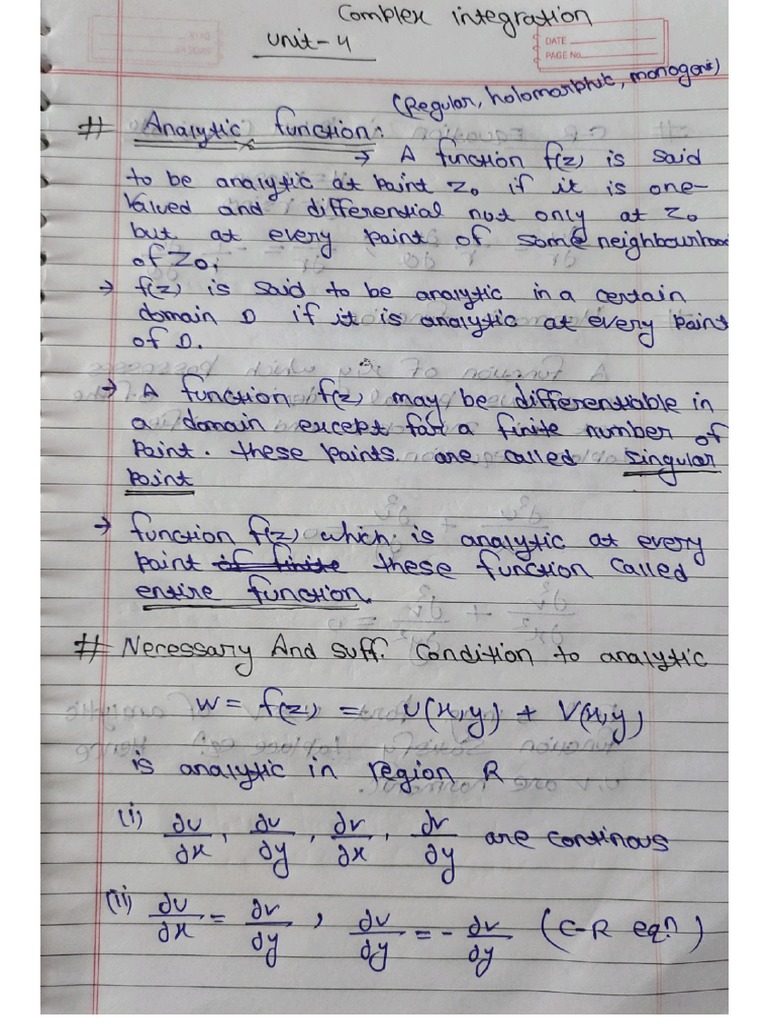 Complex integration
Unit-4
DATE
PAGE No.
(Regular, holomorphic, monogenic)
# Analytic function:
→ A function f(z) is said
to be analytic at point Z₀ if it is one-
valued and differential not only at Z₀
but at every point of some neighbourhood
of Z₀.
→ f(z) is said to be analytic in a certain
domain D if it is analytic at every point
of D.
→ A function f(z) may be differentiable in
a domain except for a finite number of
point. these points are called singular
point
→ function f(z) which is analytic at every
point of finite these function called
entire function.
# Necessary And suff. Condition to analytic
W = f(z) = u(x,y) + V(x,y)
is analytic in region R
(i) ∂u/∂x, ∂u/∂y, ∂v/∂x, ∂v/∂y are continous
(ii) ∂u/∂x = ∂v/∂y, ∂u/∂y = -∂v/∂y (C-R eqn)